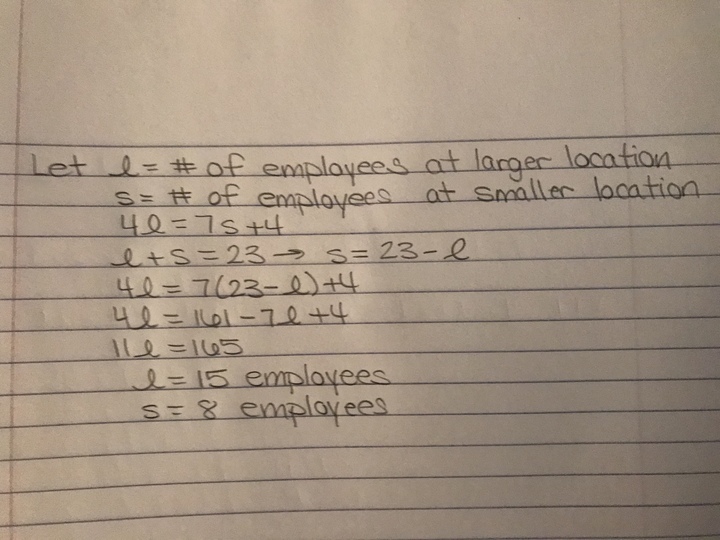 Let l = # of employees at larger location
s = # of employees at smaller location
4l = 7s+4
l+s = 23 → s = 23-l
4l = 7(23-l)+4
4l = 161-7l+4
11l = 165
l = 15 employees
s = 8 employees